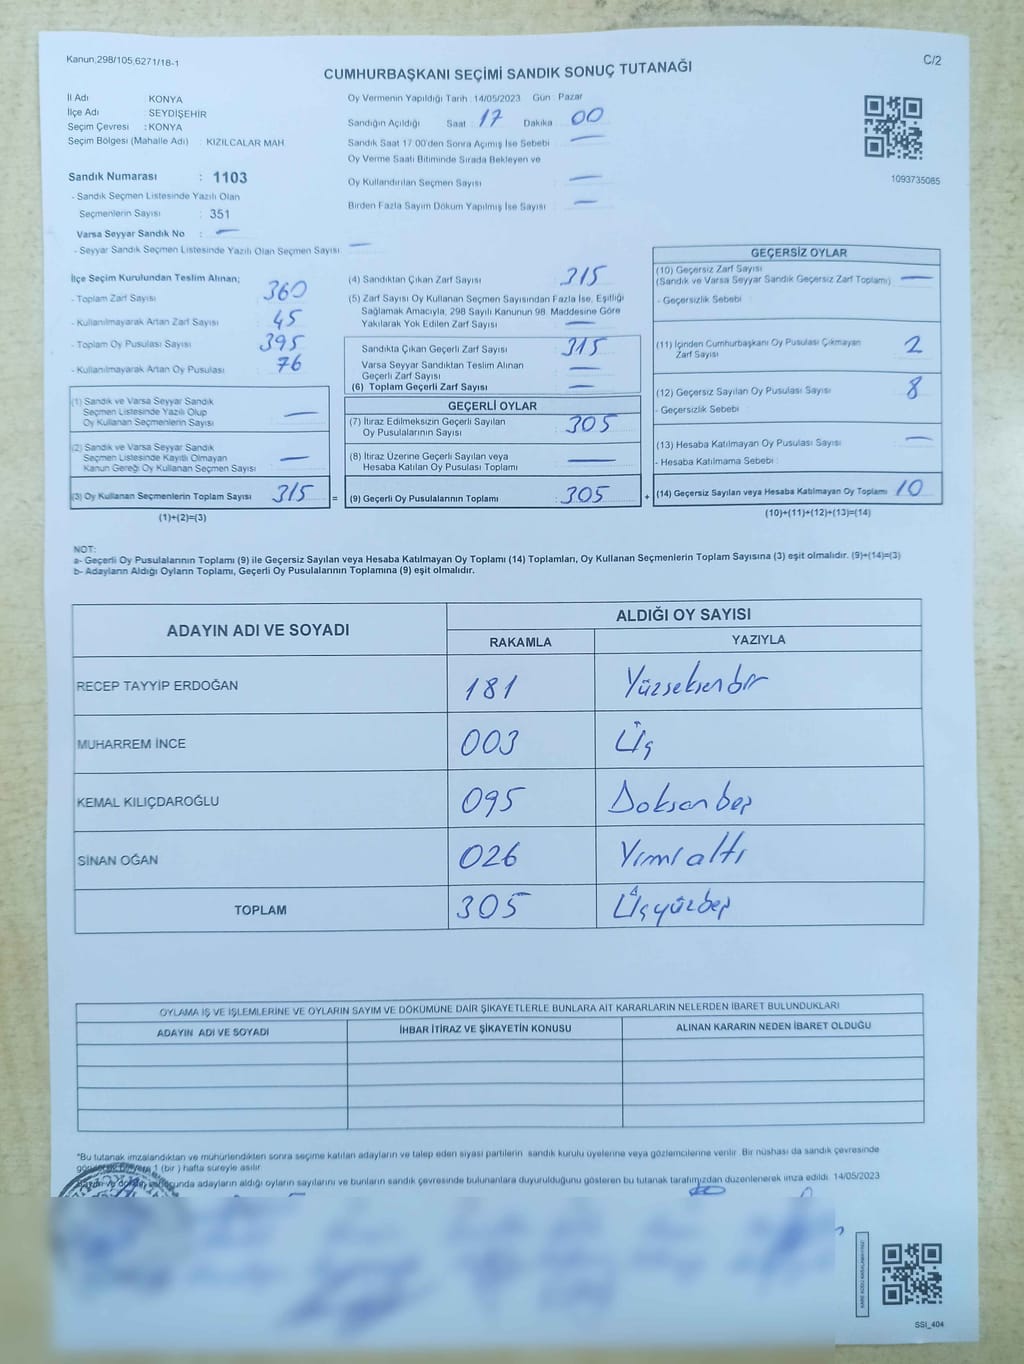 Kanun,298/105,6271/18-1
C/2
CUMHURBAŞKANI SEÇİMİ SANDIK SONUÇ TUTANAĞI
İl Adı KONYA
İlçe Adı SEYDİŞEHİR
Seçim Çevresi : KONYA
Seçim Bölgesi (Mahalle Adı) : KIZILCALAR MAH.
Sandık Numarası : 1103
- Sandık Seçmen Listesinde Yazılı Olan
Seçmenlerin Sayısı : 351
Varsa Seyyar Sandık No : —
- Seyyar Sandık Seçmen Listesinde Yazılı Olan Seçmen Sayısı —
Oy Vermenin Yapıldığı Tarih :14/05/2023 Gün : Pazar
Sandığın Açıldığı Saat : 17 Dakika : 00
Sandık Saat 17.00'den Sonra Açımış İse Sebebi —
Oy Verme Saati Bitiminde Sırada Bekleyen ve
Oy Kullandırılan Seçmen Sayısı —
Birden Fazla Sayım Döküm Yapılmış İse Sayısı —
1093735085
İlçe Seçim Kurulundan Teslim Alınan;
- Toplam Zarf Sayısı 360
- Kullanılmayarak Artan Zarf Sayısı 45
- Toplam Oy Pusulası Sayısı 395
- Kullanılmayarak Artan Oy Pusulası 76
(1) Sandık ve Varsa Seyyar Sandık
Seçmen Listesinde Yazılı Olup
Oy Kullanan Seçmenlerin Sayısı —
(2) Sandık ve Varsa Seyyar Sandık
Seçmen Listesinde Kayıtlı Olmayan
Kanun Gereği Oy Kullanan Seçmen Sayısı —
(3) Oy Kullanan Seçmenlerin Toplam Sayısı 315 =
(1)+(2)=(3)
(4) Sandıktan Çıkan Zarf Sayısı 315
(5) Zarf Sayısı Oy Kullanan Seçmen Sayısından Fazla İse, Eşitliği
Sağlamak Amacıyla, 298 Sayılı Kanunun 98. Maddesine Göre
Yakılarak Yok Edilen Zarf Sayısı —
Sandıkta Çıkan Geçerli Zarf Sayısı 315
Varsa Seyyar Sandıktan Teslim Alınan
Geçerli Zarf Sayısı —
(6) Toplam Geçerli Zarf Sayısı —
GEÇERLİ OYLAR
(7) İtiraz Edilmeksizin Geçerli Sayılan
Oy Pusulalarının Sayısı : 305
(8) İtiraz Üzerine Geçerli Sayılan veya
Hesaba Katılan Oy Pusulası Toplamı —
(9) Geçerli Oy Pusulalarının Toplamı : 305 +
GEÇERSİZ OYLAR
(10) Geçersiz Zarf Sayısı
(Sandık ve Varsa Seyyar Sandık Geçersiz Zarf Toplamı) —
- Geçersizlik Sebebi :
(11) İçinden Cumhurbaşkanı Oy Pusulası Çıkmayan
Zarf Sayısı 2
(12) Geçersiz Sayılan Oy Pusulası Sayısı 8
- Geçersizlik Sebebi :
(13) Hesaba Katılmayan Oy Pusulası Sayısı —
- Hesaba Katılmama Sebebi :
(14) Geçersiz Sayılan veya Hesaba Katılmayan Oy Toplamı 10
(10)+(11)+(12)+(13)=(14)
NOT:
a- Geçerli Oy Pusulalarının Toplamı (9) ile Geçersiz Sayılan veya Hesaba Katılmayan Oy Toplamı (14) Toplamları, Oy Kullanan Seçmenlerin Toplam Sayısına (3) eşit olmalıdır. (9)+(14)=(3)
b- Adayların Aldığı Oyların Toplamı, Geçerli Oy Pusulalarının Toplamına (9) eşit olmalıdır.
ADAYIN ADI VE SOYADI
ALDIĞI OY SAYISI
RAKAMLA YAZIYLA
RECEP TAYYİP ERDOĞAN 181 Yüzseksenbir
MUHARREM İNCE 003 Üç
KEMAL KILIÇDAROĞLU 095 Doksanbeş
SİNAN OĞAN 026 Yirmialtı
TOPLAM 305 Üçyüzbeş
OYLAMA İŞ VE İŞLEMLERİNE VE OYLARIN SAYIM VE DÖKÜMÜNE DAİR ŞİKAYETLERLE BUNLARA AİT KARARLARIN NELERDEN İBARET BULUNDUKLARI
ADAYIN ADI VE SOYADI İHBAR İTİRAZ VE ŞİKAYETİN KONUSU ALINAN KARARIN NEDEN İBARET OLDUĞU
*Bu tutanak imzalandıktan ve mühürlendikten sonra seçime katılan adayların ve talep eden siyasi partilerin sandık kurulu üyelerine veya gözlemcilerine verilir. Bir nüshası da sandık çevresinde
1 (bir ) hafta süreyle asılır.
adayların aldığı oyların sayılarını ve bunların sandık çevresinde bulunanlara duyurulduğunu gösteren bu tutanak tarafımızdan düzenlenerek imza edildi. 14/05/2023
SSI_404